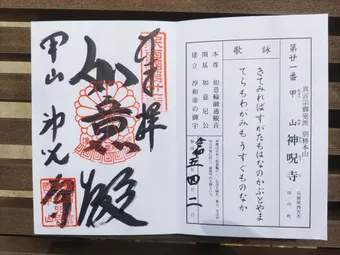 第廿一番 甲山 神呪寺
真言宗御室派 別格本山
兵庫県西宮市
甲山町
詠歌
きてみれば すがたもはなの かぶとやま
てらもわがみも うすくものなか
本尊 如意輪融通観音
開基 如意尼公
建立 淳和帝の御宇
令和五年四月二日
奉拝
如意殿
甲山 神呪寺